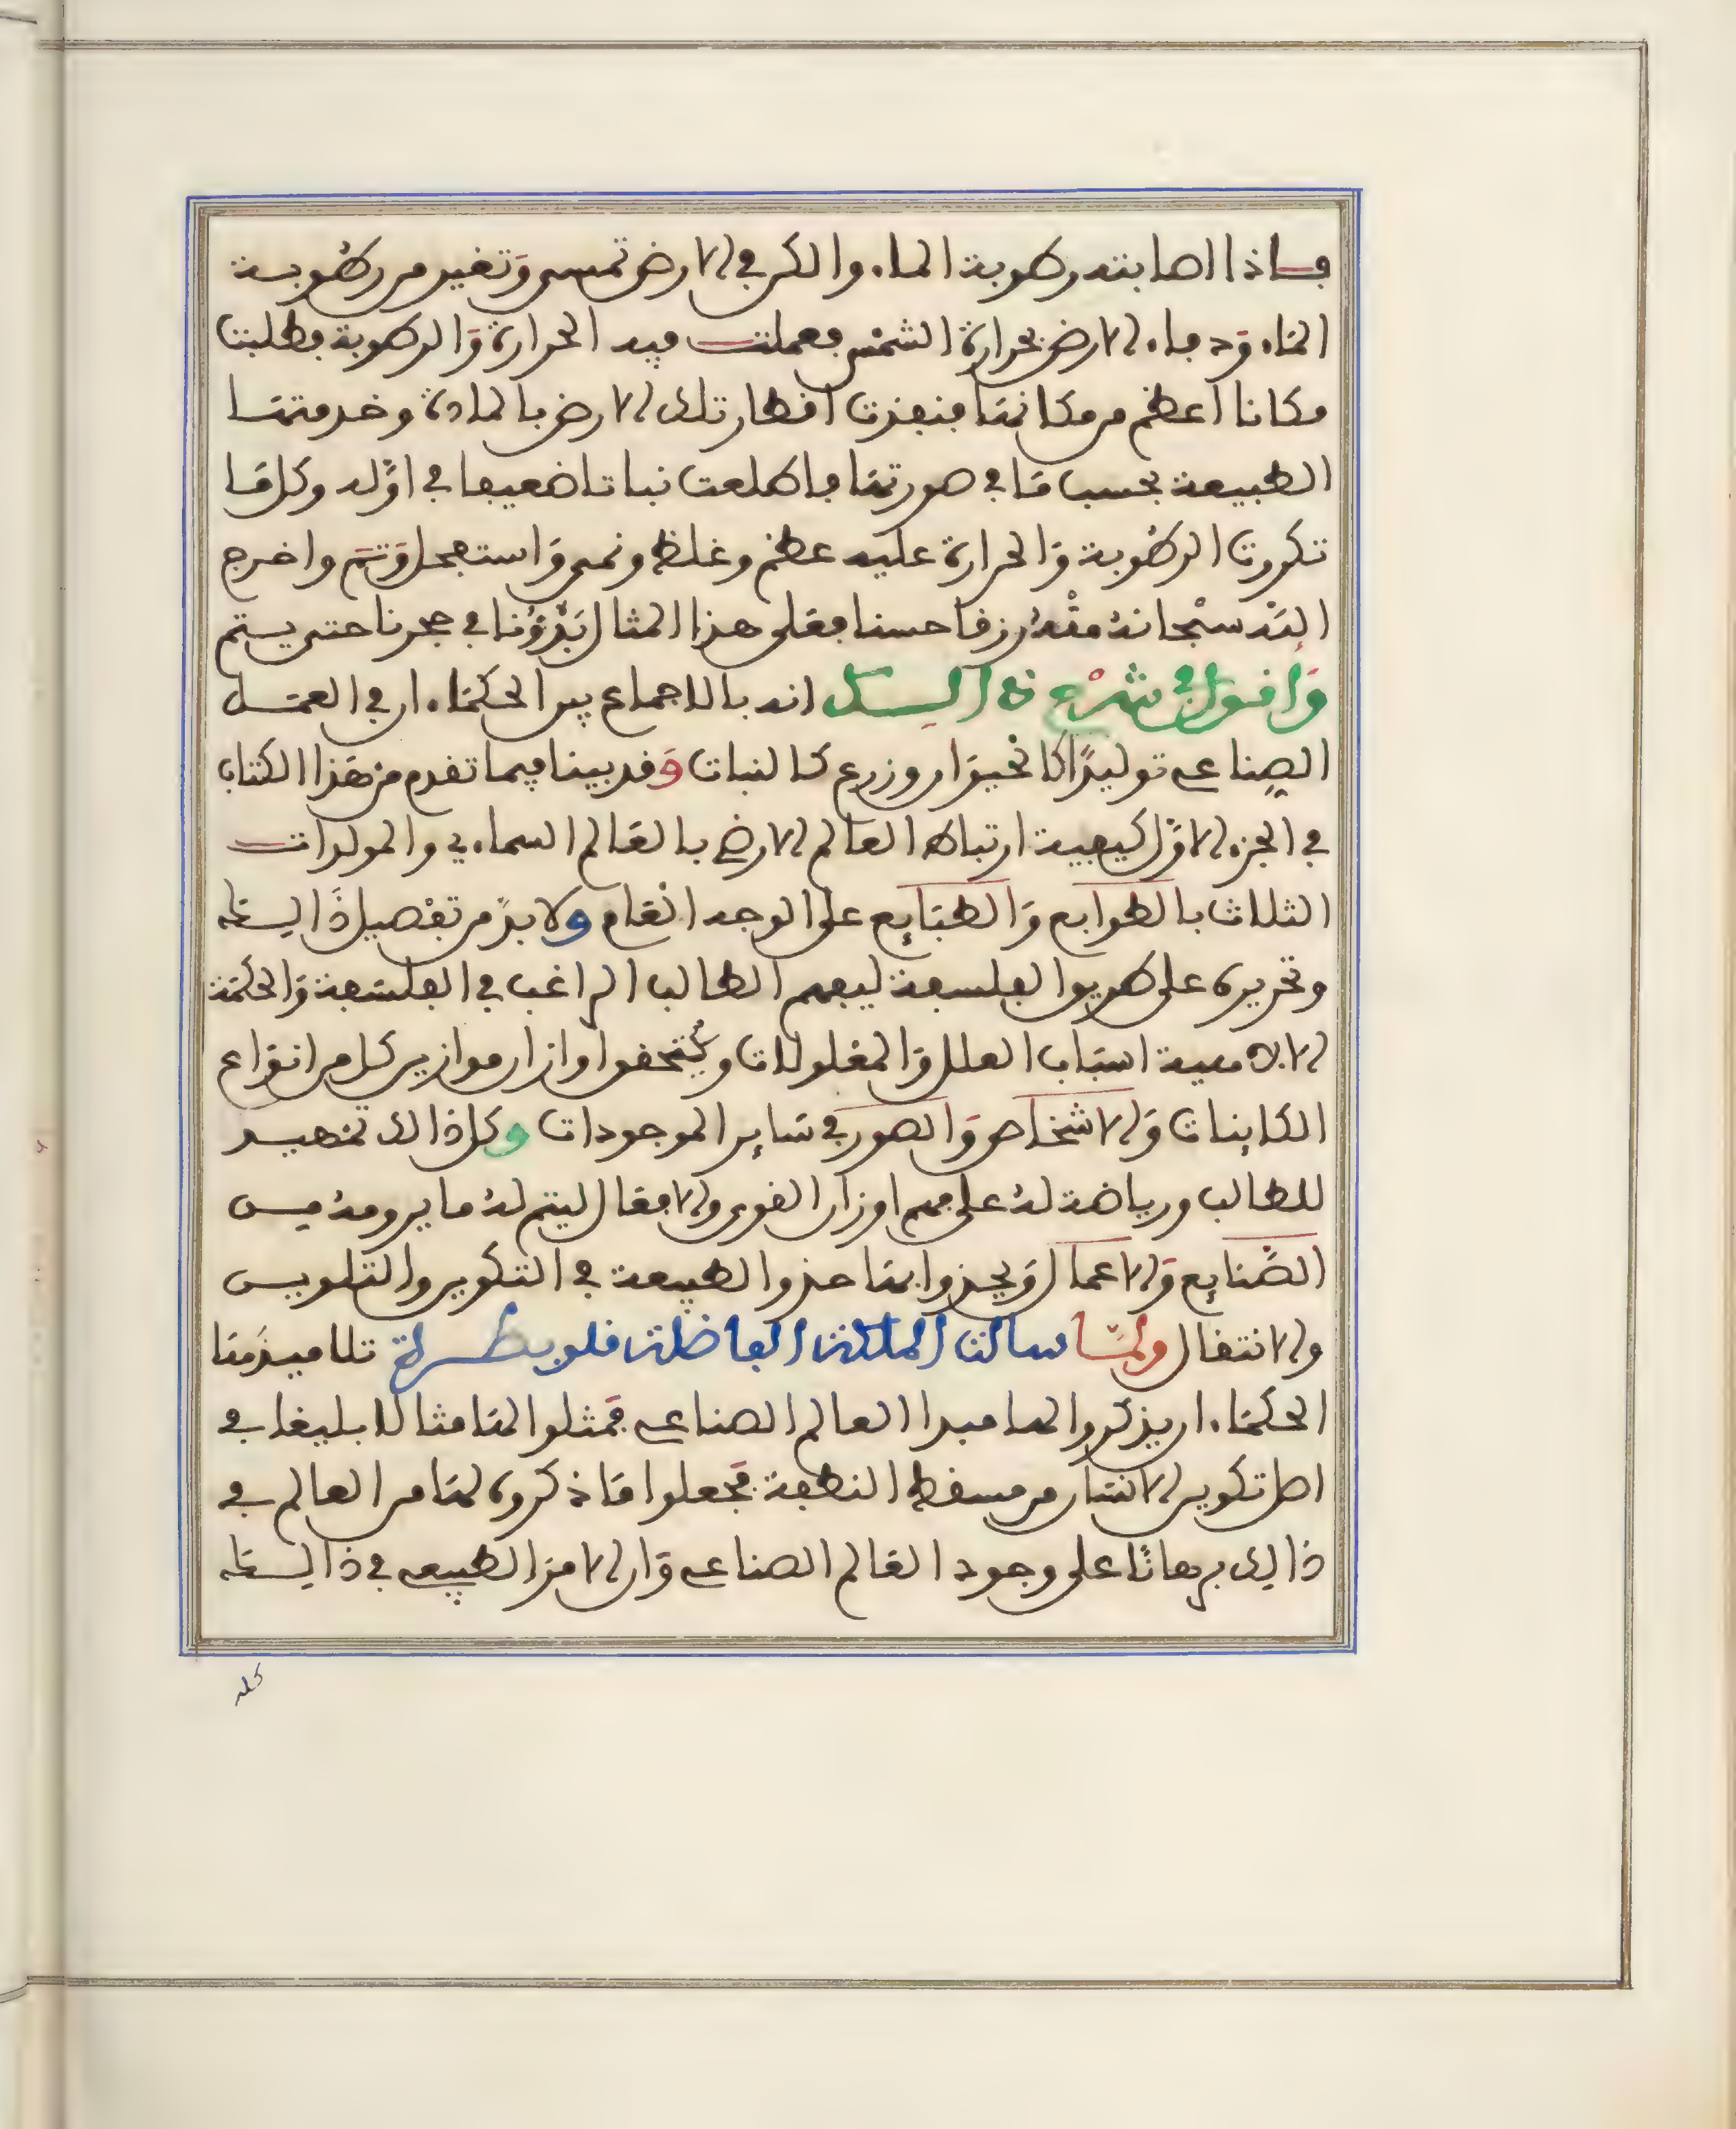 فاذا اصابته رطوبة الماء والكن في الارض تمسى وتغير من رطوبة
الماء ودفاء الارض بحرارة الشمس فعملت فيه الحرارة والرطوبة فطلبت
مكانا اعظم من مكانها فنفذت اقطار تلك الارض بالمادة وخدمتها
الطبيعة بحسب ما في صورتها فاطلعت نباتا ضعيفا في اوله وكلما
تكررت الرطوبة والحرارة عليه عظم وغلظ ونمى واستعجل وتم واخرج
الله سبحانه منه رزقا حسنا فعلى هذا المثال بذرنا في حجرنا حتى يتم
واقول في شرح ذالك انه بالاجماع بين الحكماء ان في العمل
الصناعي توليدا كالحيوان وزرع كالنبات وقد بينا فيما تقدم من هذا الكتاب
في الجزء الاول كيفية ارتباط العالم الارضي بالعالم السماءي والمولدات
الثلاث بالطوابع والطبايع على الوجه العام ولا بد من تفصيل ذالك
وتحريره على طريق الفلسفة ليفهم الطالب الراغب في الفلسفة والحكمة
الالاهية اسباب العلل والمعلولات ويتحقق اوزان موازين كل من انواع
الكاينات والاشخاص والصور في ساير الموجودات وكل ذالك تمهيد
للطالب ورياضة له على فهم اوزان القوى والافعال ليتم له ما يرومه من
الصنايع والاعمال ويحذوا بها حذو الطبيعة في التكوين والتلوين
والانتقال ولما سالت الملكة الفاضلة قلوبطرة تلاميذها
الحكماء ان يذكروا لها مبدا العالم الصناعي فمثلوا لها مثالا بليغا في
اصل تكوين الانسان من مسقط النطفة فجعلوا ما ذكروه لها من العالم في
ذالك برهانا على وجود العالم الصناعي وان الامر الطبيعي في ذالك
كله